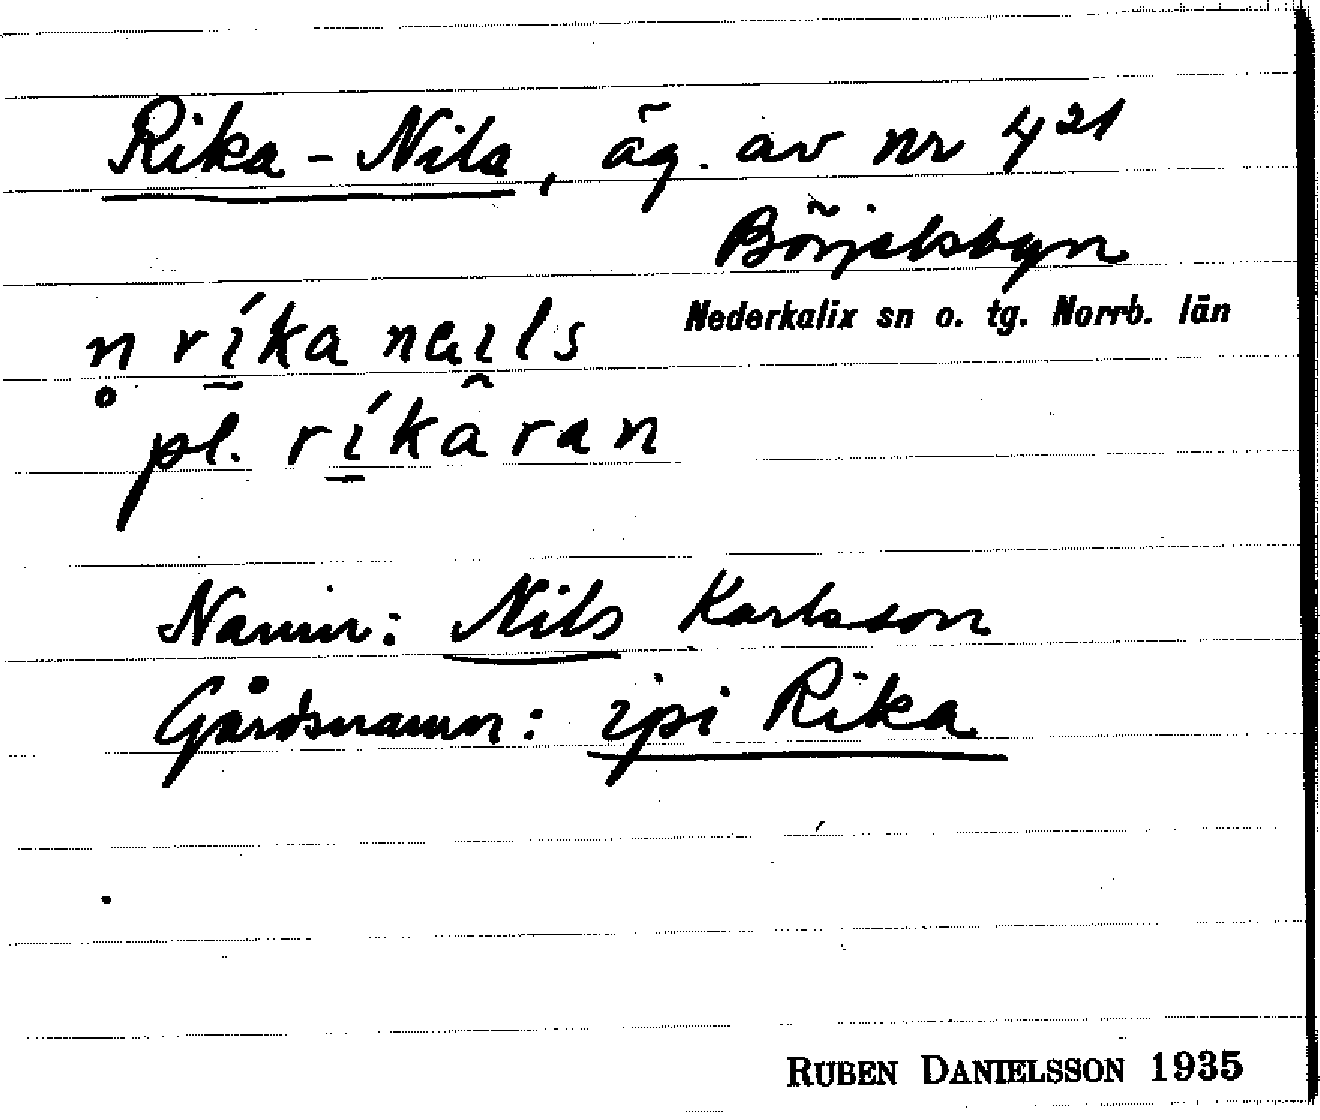 Rika-Nils, äg. av nr 4²¹
Börjelsbyn
Nederkalix sn o. tg. Norrb. län
n̥ ríka naıls
pl. ríkâran
Namn: Nils Karlsson
Gårdsnamn: ipi Rika
RUBEN DANIELSSON 1935